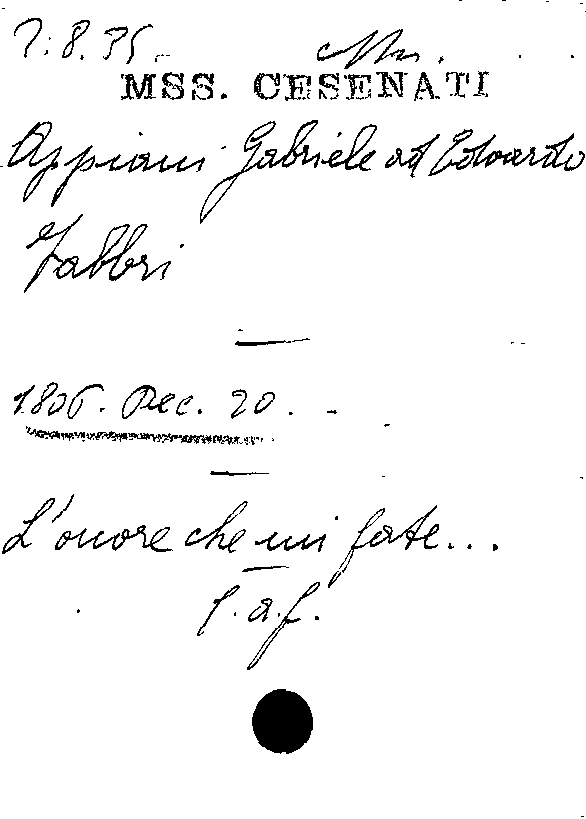 7.8.35.
MSS. CESENATI
Appiani Gabriele ad Edoardo
Fabbri
1806. Dec. 20.
L'onore che mi fate...
1.a.f.